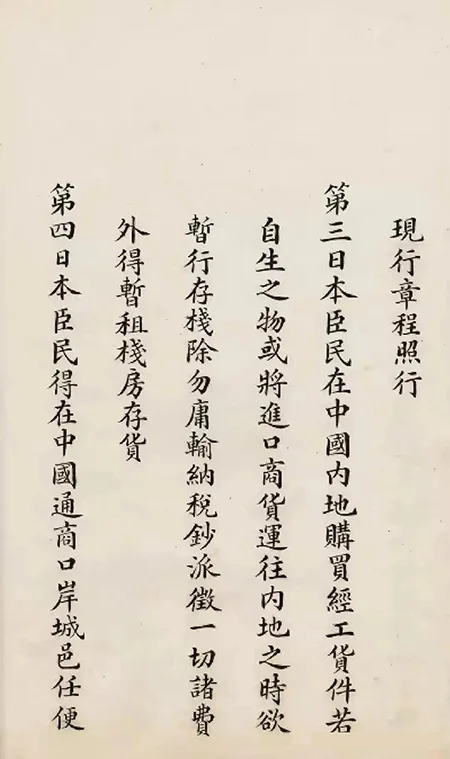 現行章程照行
第三日本臣民在中國内地購買經工貨件若
自生之物或將進口商貨運往内地之時欲
暫行存棧除勿庸輸納稅鈔派徵一切諸費
外得暫租棧房存貨
第四日本臣民得在中國通商口岸城邑任便